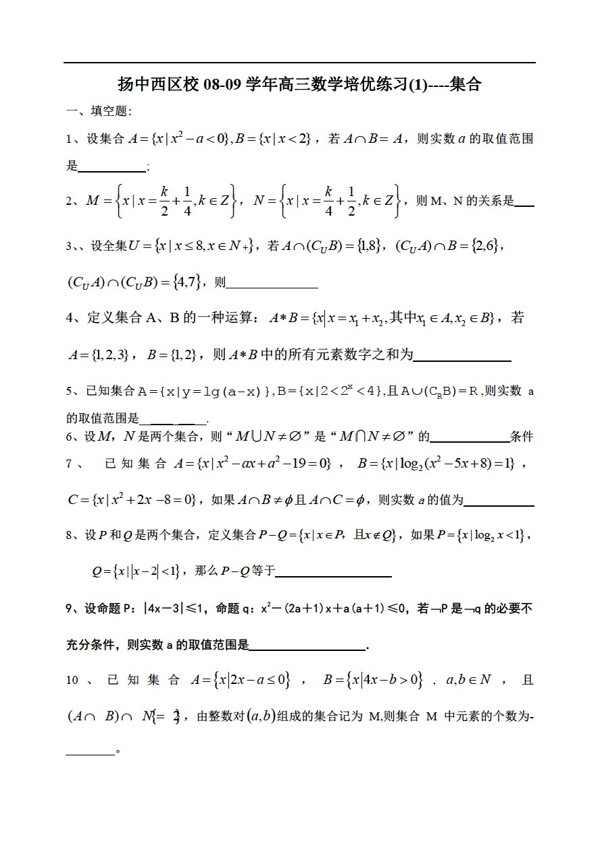 扬中西区校 08-09 学年高三数学培优练习(1)----集合
一、填空题:
1、设集合 A={x|x²−a<0},B={x|x<2}，若 A∩B= A，则实数 a 的取值范围
是___________;
2、M={x|x=k/2+1/4,k∈Z}，N={x|x=k/4+1/2,k∈Z}，则M、N的关系是___
3、、设全集U={x|x≤8,x∈N₊}，若 A∩(C_U B)={1,8}，(C_U A)∩B={2,6}，
(C_U A)∩(C_U B)={4,7}，则______________
4、定义集合 A、B 的一种运算：A*B={x|x=x₁+x₂,其中x₁∈A,x₂∈B}，若
A={1,2,3}，B={1,2}，则 A*B 中的所有元素数字之和为______________
5、已知集合 A={x|y=lg(a-x)},B={x|2<2ˣ<4},且 A∪(C_R B)=R,则实数 a
的取值范围是__________.
6、设M，N是两个集合，则“M∪N≠∅”是“M∩N≠∅”的____________条件
7、 已知集合 A={x|x²−ax+a²−19=0}，B={x|log₂(x²−5x+8)=1}，
C={x|x²+2x−8=0}，如果 A∩B≠ϕ且 A∩C=ϕ，则实数 a 的值为___________
8、设 P 和 Q 是两个集合，定义集合 P−Q={x|x∈P，且x∉Q}，如果 P={x|log₂ x<1}，
Q={x||x−2|<1}，那么 P−Q 等于__________________
9、设命题 P：|4x－3|≤1，命题 q：x²－(2a＋1)x＋a(a＋1)≤0，若￢P 是￢q 的必要不
充分条件，则实数 a 的取值范围是__________________．
10、已知集合 A={x|2x−a≤0}，B={x|4x−b>0}，a,b∈N，且
(A∩ B)∩ N={ 2}，由整数对(a,b)组成的集合记为 M,则集合 M 中元素的个数为-
________。